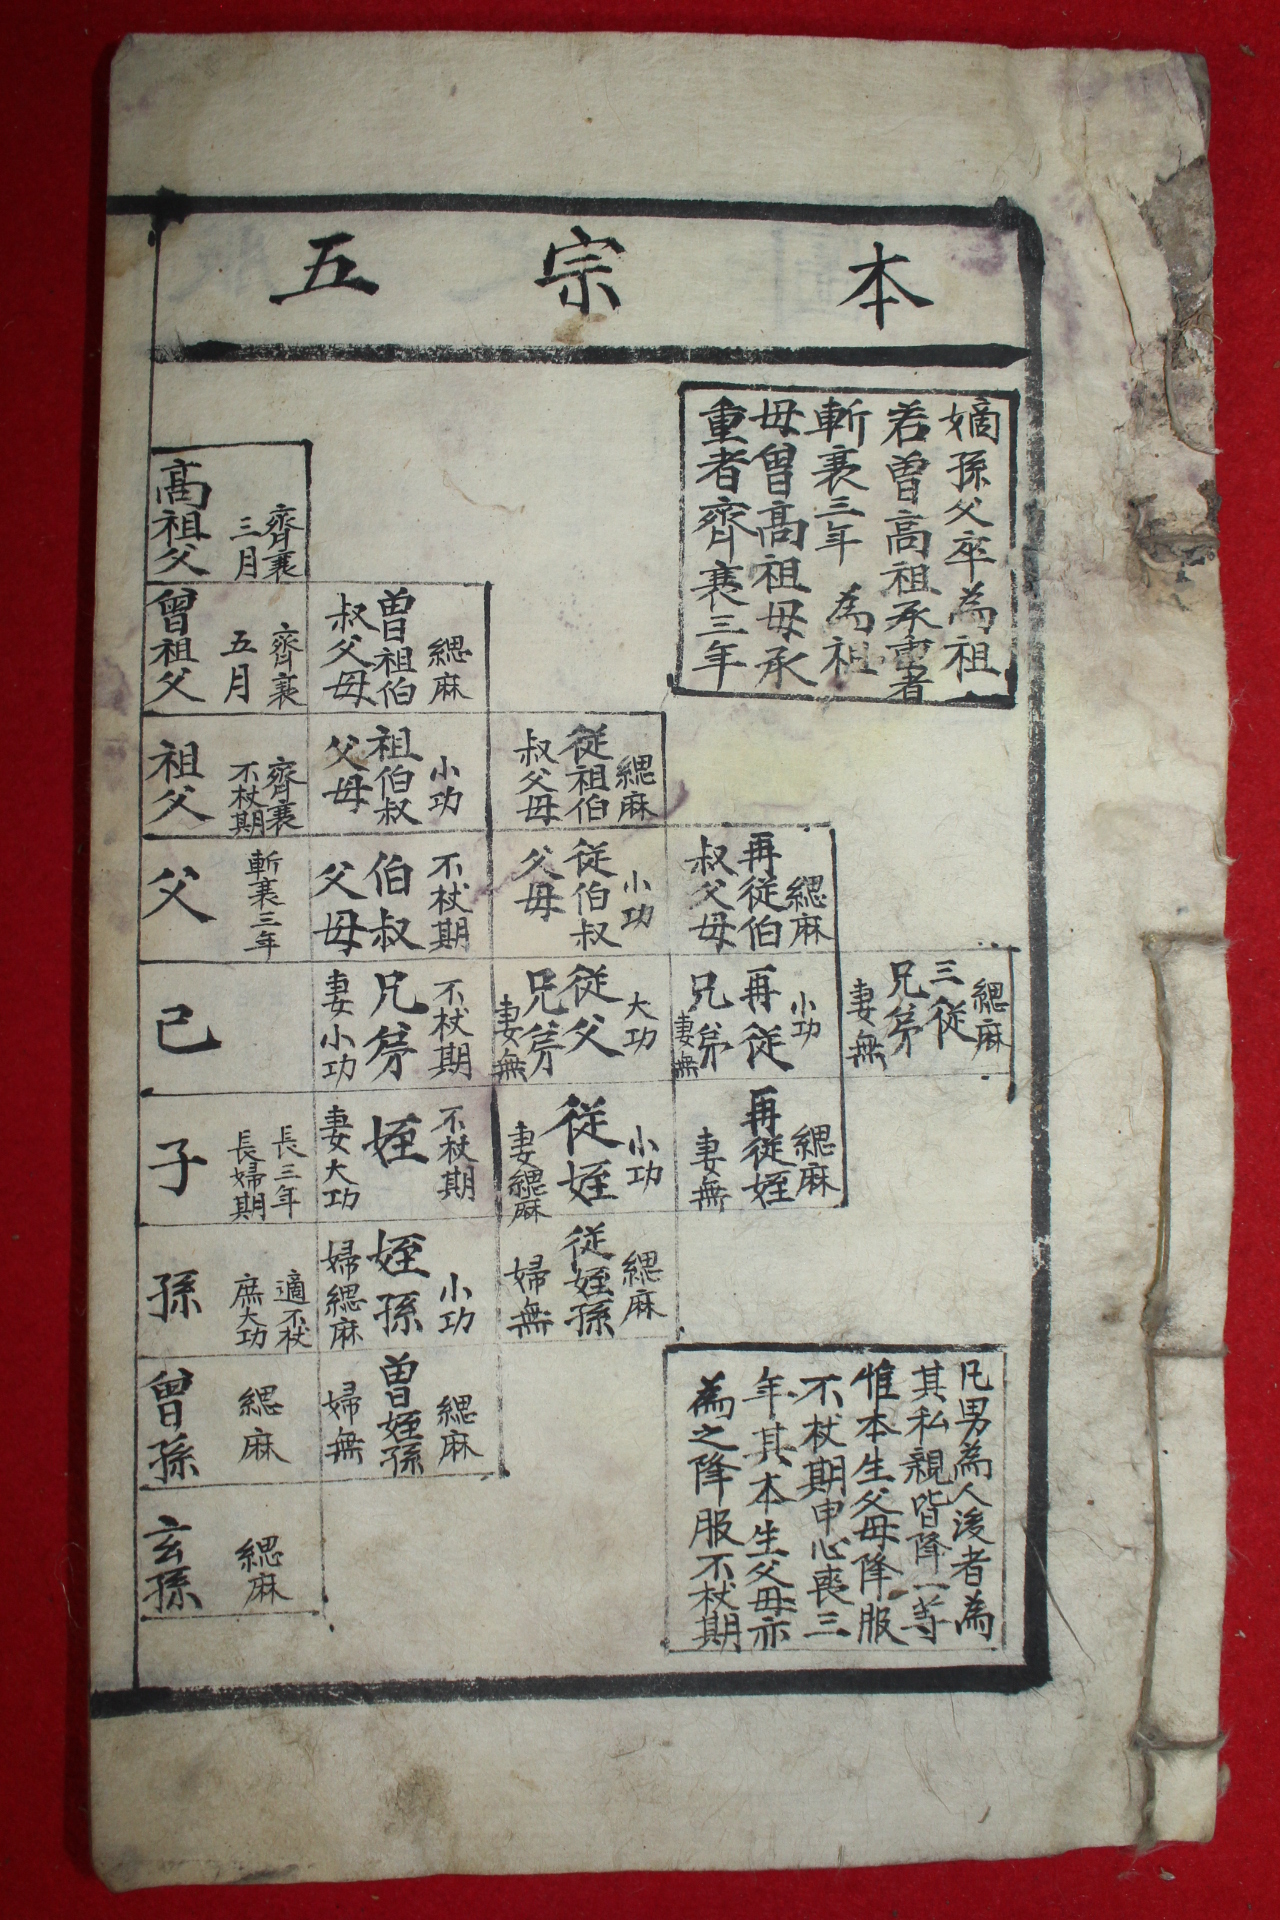 本宗五
嫡孫父卒為祖
若曾高祖承重者
斬衰三年 為祖
母曾高祖母承
重者齊衰三年
齊衰
三月
高祖父
緦麻
曾祖伯
叔父母
齊衰
五月
曾祖父
緦麻
從祖伯
叔父母
小功
祖伯叔
父母
齊衰
不杖期
祖父
緦麻
再從伯
叔父母
小功
從伯叔
父母
不杖期
伯叔
父母
斬衰三年
父
緦麻
三從
兄弟
妻無
小功
再從
兄弟
妻無
大功
從父
兄弟
妻無
不杖期
兄弟
妻小功
己
緦麻
再從姪
妻無
小功
從姪
妻緦麻
不杖期
姪
妻大功
長三年
長婦期
子
緦麻
從姪孫
婦無
小功
姪孫
婦緦麻
適不杖
庶大功
孫
緦麻
曾姪孫
婦無
緦麻
曾孫
緦麻
玄孫
凡男為人後者為
其私親皆降一等
惟本生父母降服
不杖期申心喪三
年其本生父母亦
為之降服不杖期